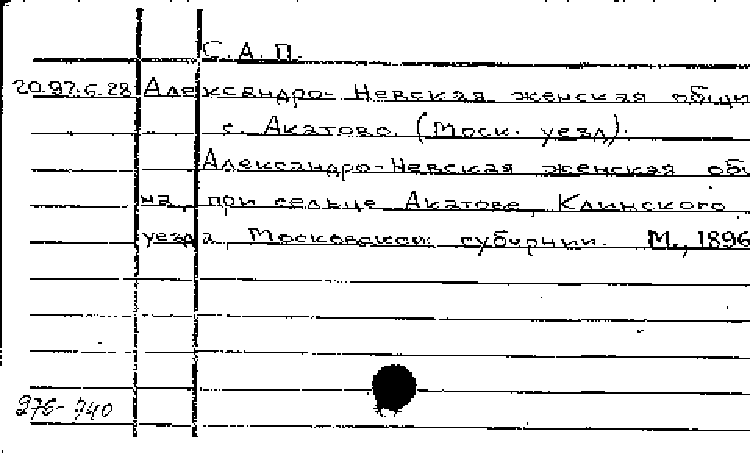 С. А. П.
20.97.6.28 Александро-Невская женская общи
с. Акатово. (Моск. уезд).
Александро-Невская женская об
на, при сельце Акатове, Клинского
уезда, Московской губернии. М., 1896
276-340